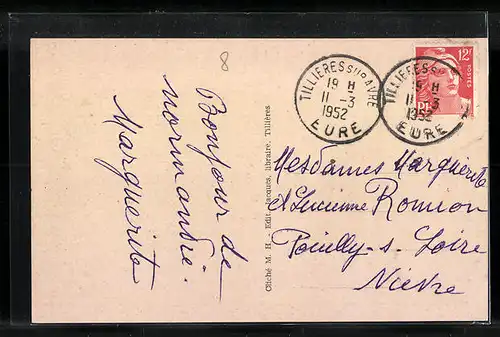 8
Bonjour de
normandie.
Marguerite
Cliché M. H. - Edit. Jacques, libraire, Tillières
TILLIERES SUR AVRE
19 H
11 -3
1952
EURE
TILLIERES S
19 H
11 -3
1952
EURE
12F
POSTES
Mesdames Marguerite
et Lucienne Romion
Pouilly-s-Loire
Nièvre